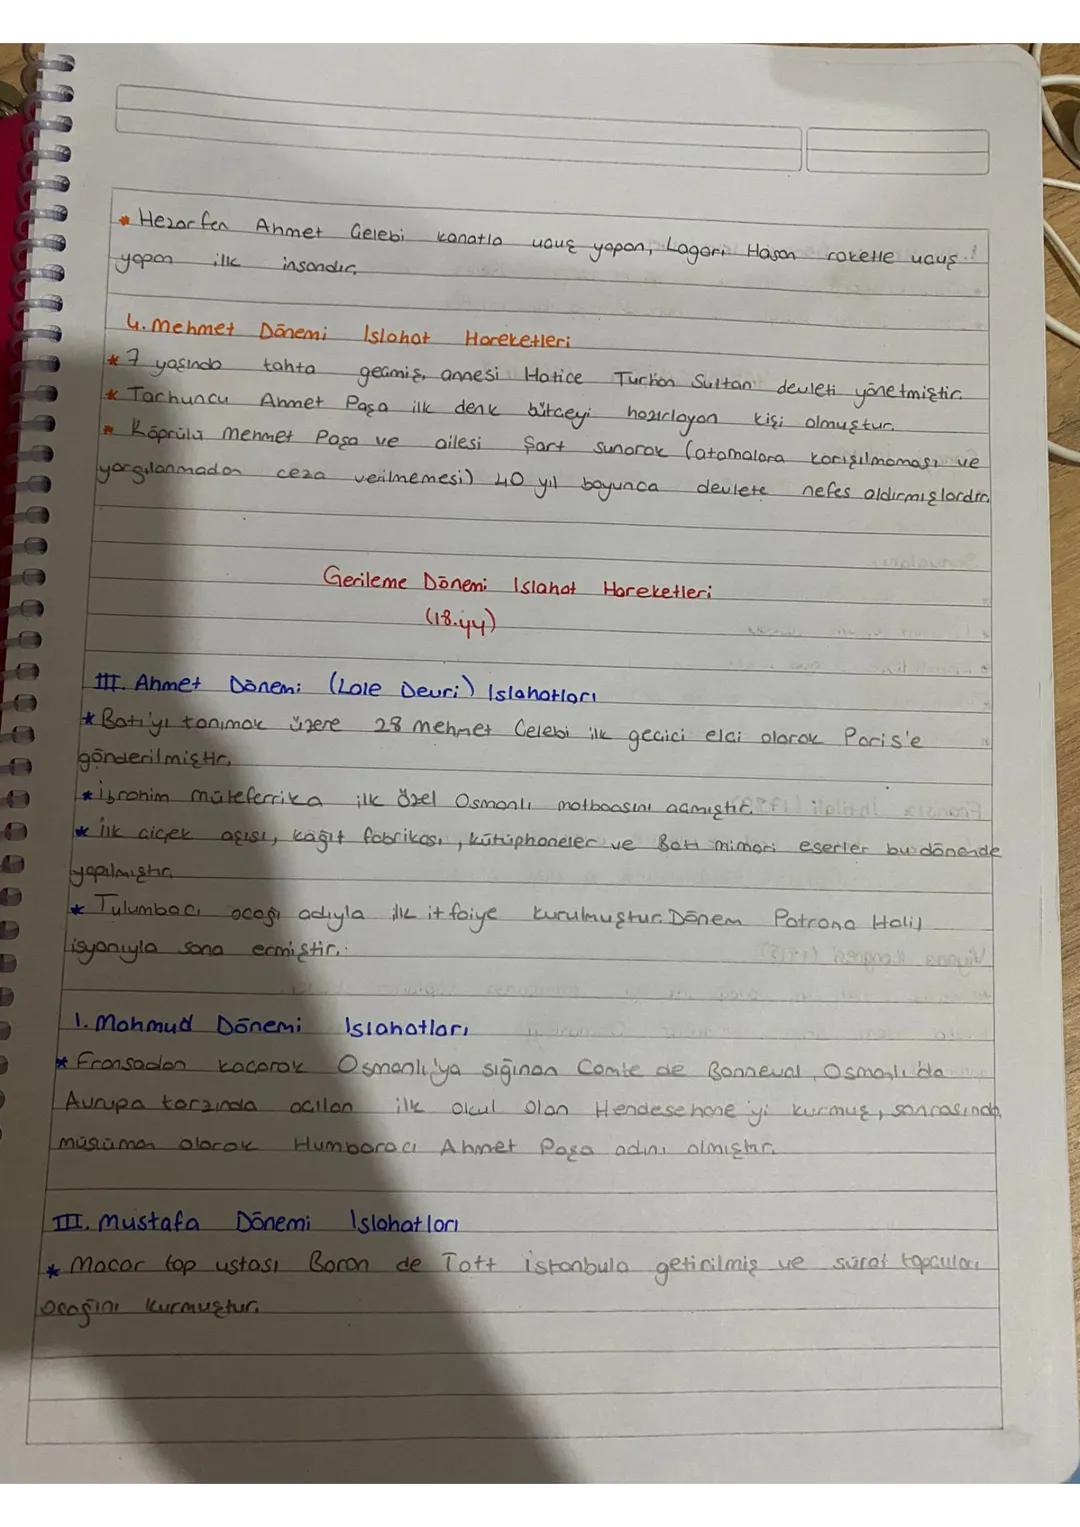 * Hezarfen Ahmet Çelebi kanatla uçuş yapan, Lagari Hasan roketle uçuş
yapan ilk insandır.
4. Mehmet Dönemi Islahat Hareketleri
* 7 yaşında tahta geçmiş, annesi Hatice Turhan Sultan devleti yönetmiştir.
* Tarhuncu Ahmet Paşa ilk denk bütçeyi hazırlayan kişi olmuştur.
* Köprülü Mehmet Paşa ve ailesi şart sunarak (atamalara karışılmaması ve
yargılanmadan ceza verilmemesi) 40 yıl boyunca devlete nefes aldırmışlardır.
Gerileme Dönemi Islahat Hareketleri
(18.yy)
III. Ahmet Dönemi (Lale Devri) Islahatları
* Batı'yı tanımak üzere 28 Mehmet Çelebi ilk geçici elçi olarak Paris'e
gönderilmiştir.
* İbrahim müteferrika ilk özel Osmanlı matbaasını açmıştır.
* İlk çiçek aşısı, kağıt fabrikası, kütüphaneler ve Batı mimari eserler bu dönemde
yapılmıştır.
* Tulumbacı ocağı adıyla ilk itfaiye kurulmuştur. Dönem Patrona Halil
isyanıyla sona ermiştir.
1. Mahmud Dönemi Islahatları
* Fransadan kaçarak Osmanlı'ya sığınan Comte de Bonneval, Osmanlı'da
Avrupa tarzında açılan ilk okul olan Hendesehane'yi kurmuş, sonrasında
müslüman olarak Humbaracı Ahmet Paşa adını almıştır.
III. Mustafa Dönemi Islahatları
* Macar top ustası Baron de Tott istanbula getirilmiş ve sürat topçuları
ocağını kurmuştur.